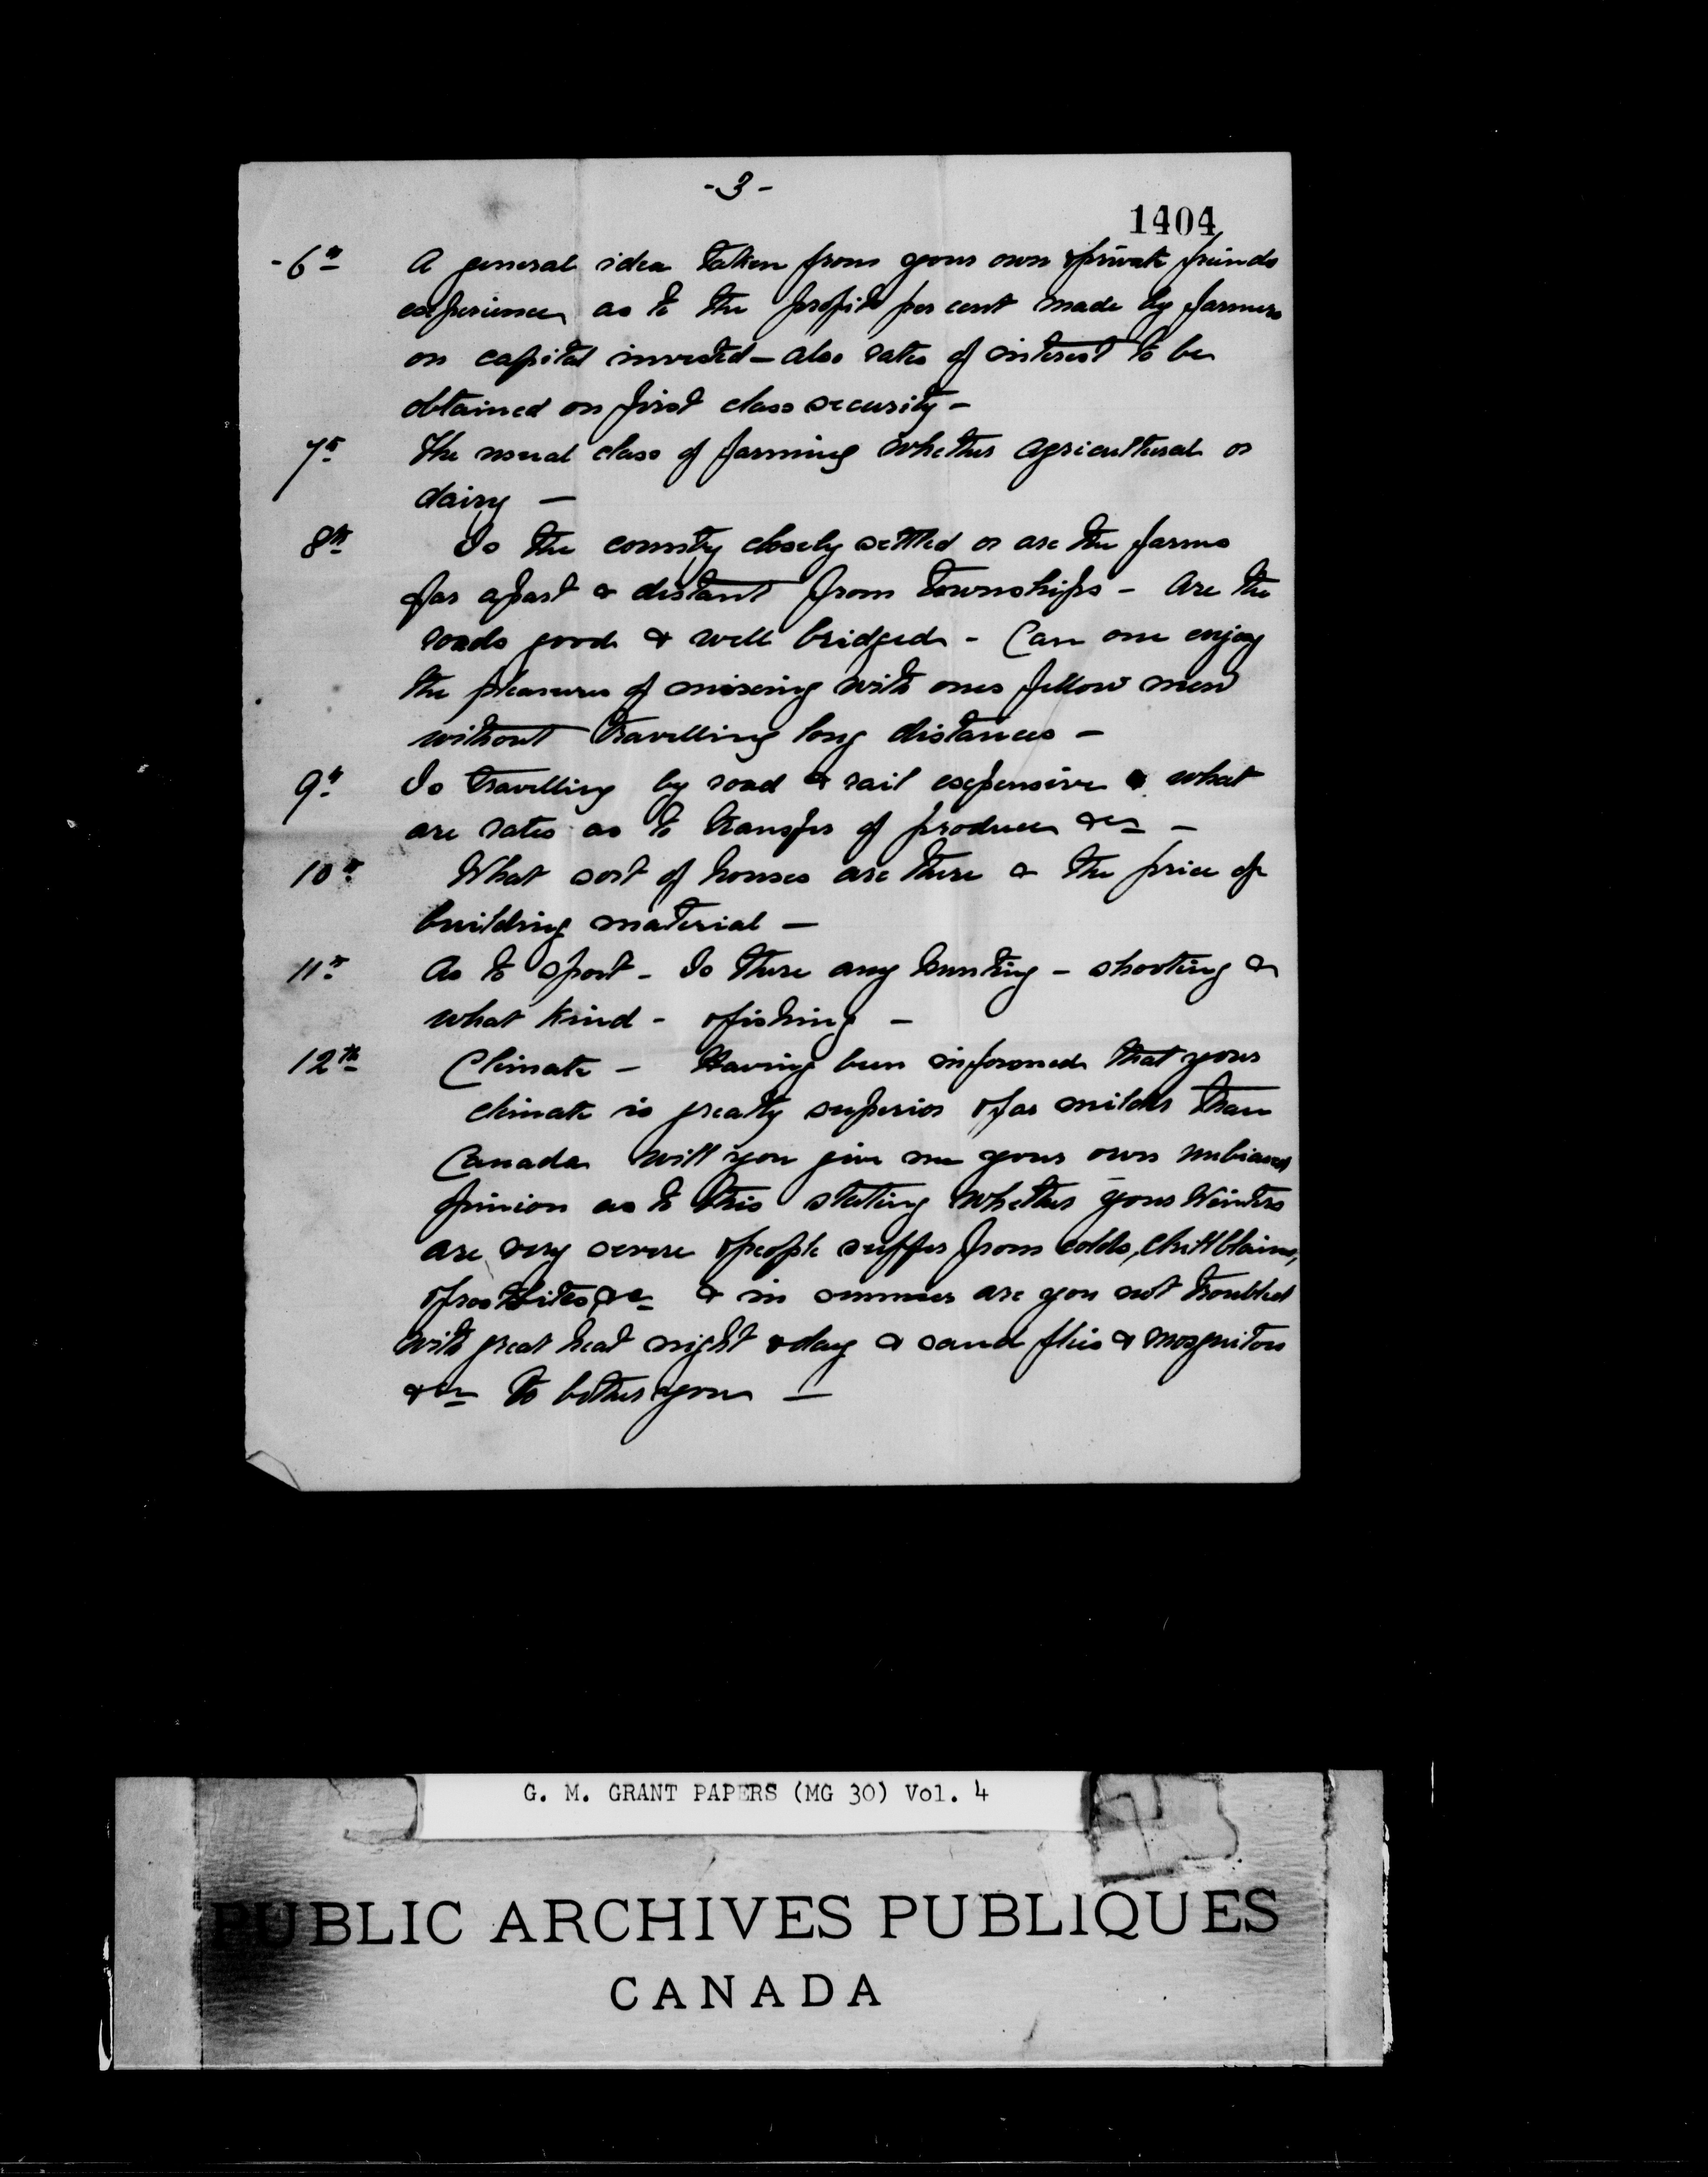 -3-
1404
-6th A general idea taken from your own & private friends
experience as to the profit per cent made by farmers
on capital invested - also rates of interest to be
obtained on first class security -
7th The usual class of farming whether agricultural or
dairy -
8th Is the country closely settled or are the farms
far apart & distant from townships - Are the
roads good & well bridged - Can one enjoy
the pleasures of mixing with ones fellow men
without travelling long distances -
9th Is travelling by road & rail expensive & what
are rates as to transfer of produce &c -
10th What sort of houses are there & the price of
building material -
11th As to sport - Is there any hunting - shooting &
what kind - & fishing -
12th Climate - Having been informed that your
climate is greatly superior & far milder than
Canada will you give me your own unbiased
opinion as to this stating whether your Winters
are very severe & people suffer from colds, chillblains,
& frostbites &c & in summer are you not troubled
with great heat night & day & sand flies & mosquitoes
&c to bother you -
G. M. GRANT PAPERS (MG 30) Vol. 4
PUBLIC ARCHIVES PUBLIQUES
CANADA